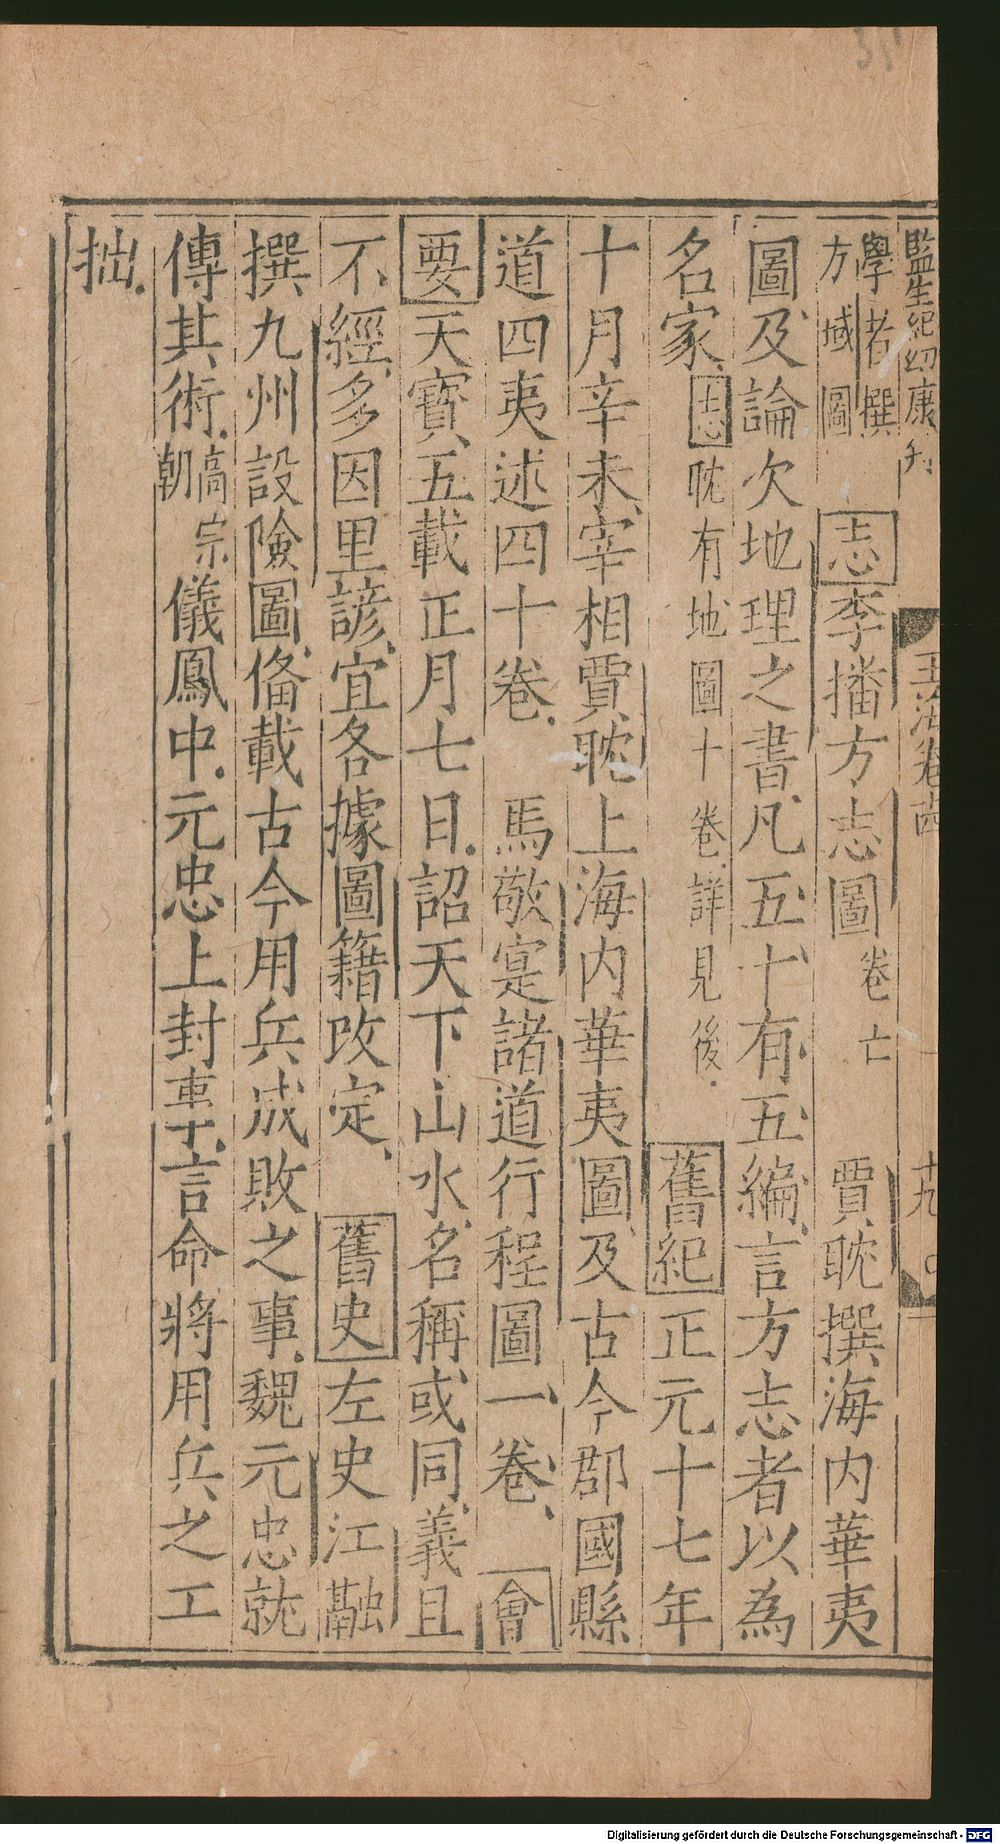 監生紀幼康刊
玉海卷十四
十九
學者撰
方域圖
志李播方志圖卷亡 賈耽撰海内華夷
圖及論次地理之書凡五十有五編言方志者以為
名家志耽有地圖十卷詳見後 舊紀正元十七年
十月辛未宰相賈耽上海内華夷圖及古今郡國縣
道四夷述四十卷 馬敬寔諸道行程圖一卷 會
要天寶五載正月七日詔天下山水名稱或同義且
不經多因里諺宜各據圖籍改定 舊史左史江融
撰九州設險圖備載古今用兵成敗之事魏元忠就
傳其術高宗朝儀鳳中元忠上封事言命將用兵之工
拙
Digitalisierung gefördert durch die Deutsche Forschungsgemeinschaft - DFG